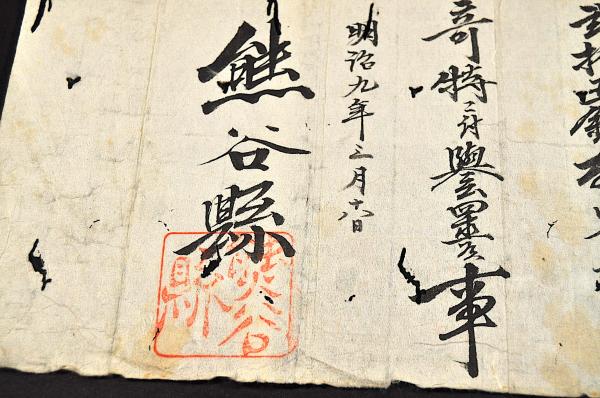 奇特ニ付譽置候事
明治九年三月十八日
熊谷縣
熊谷
縣